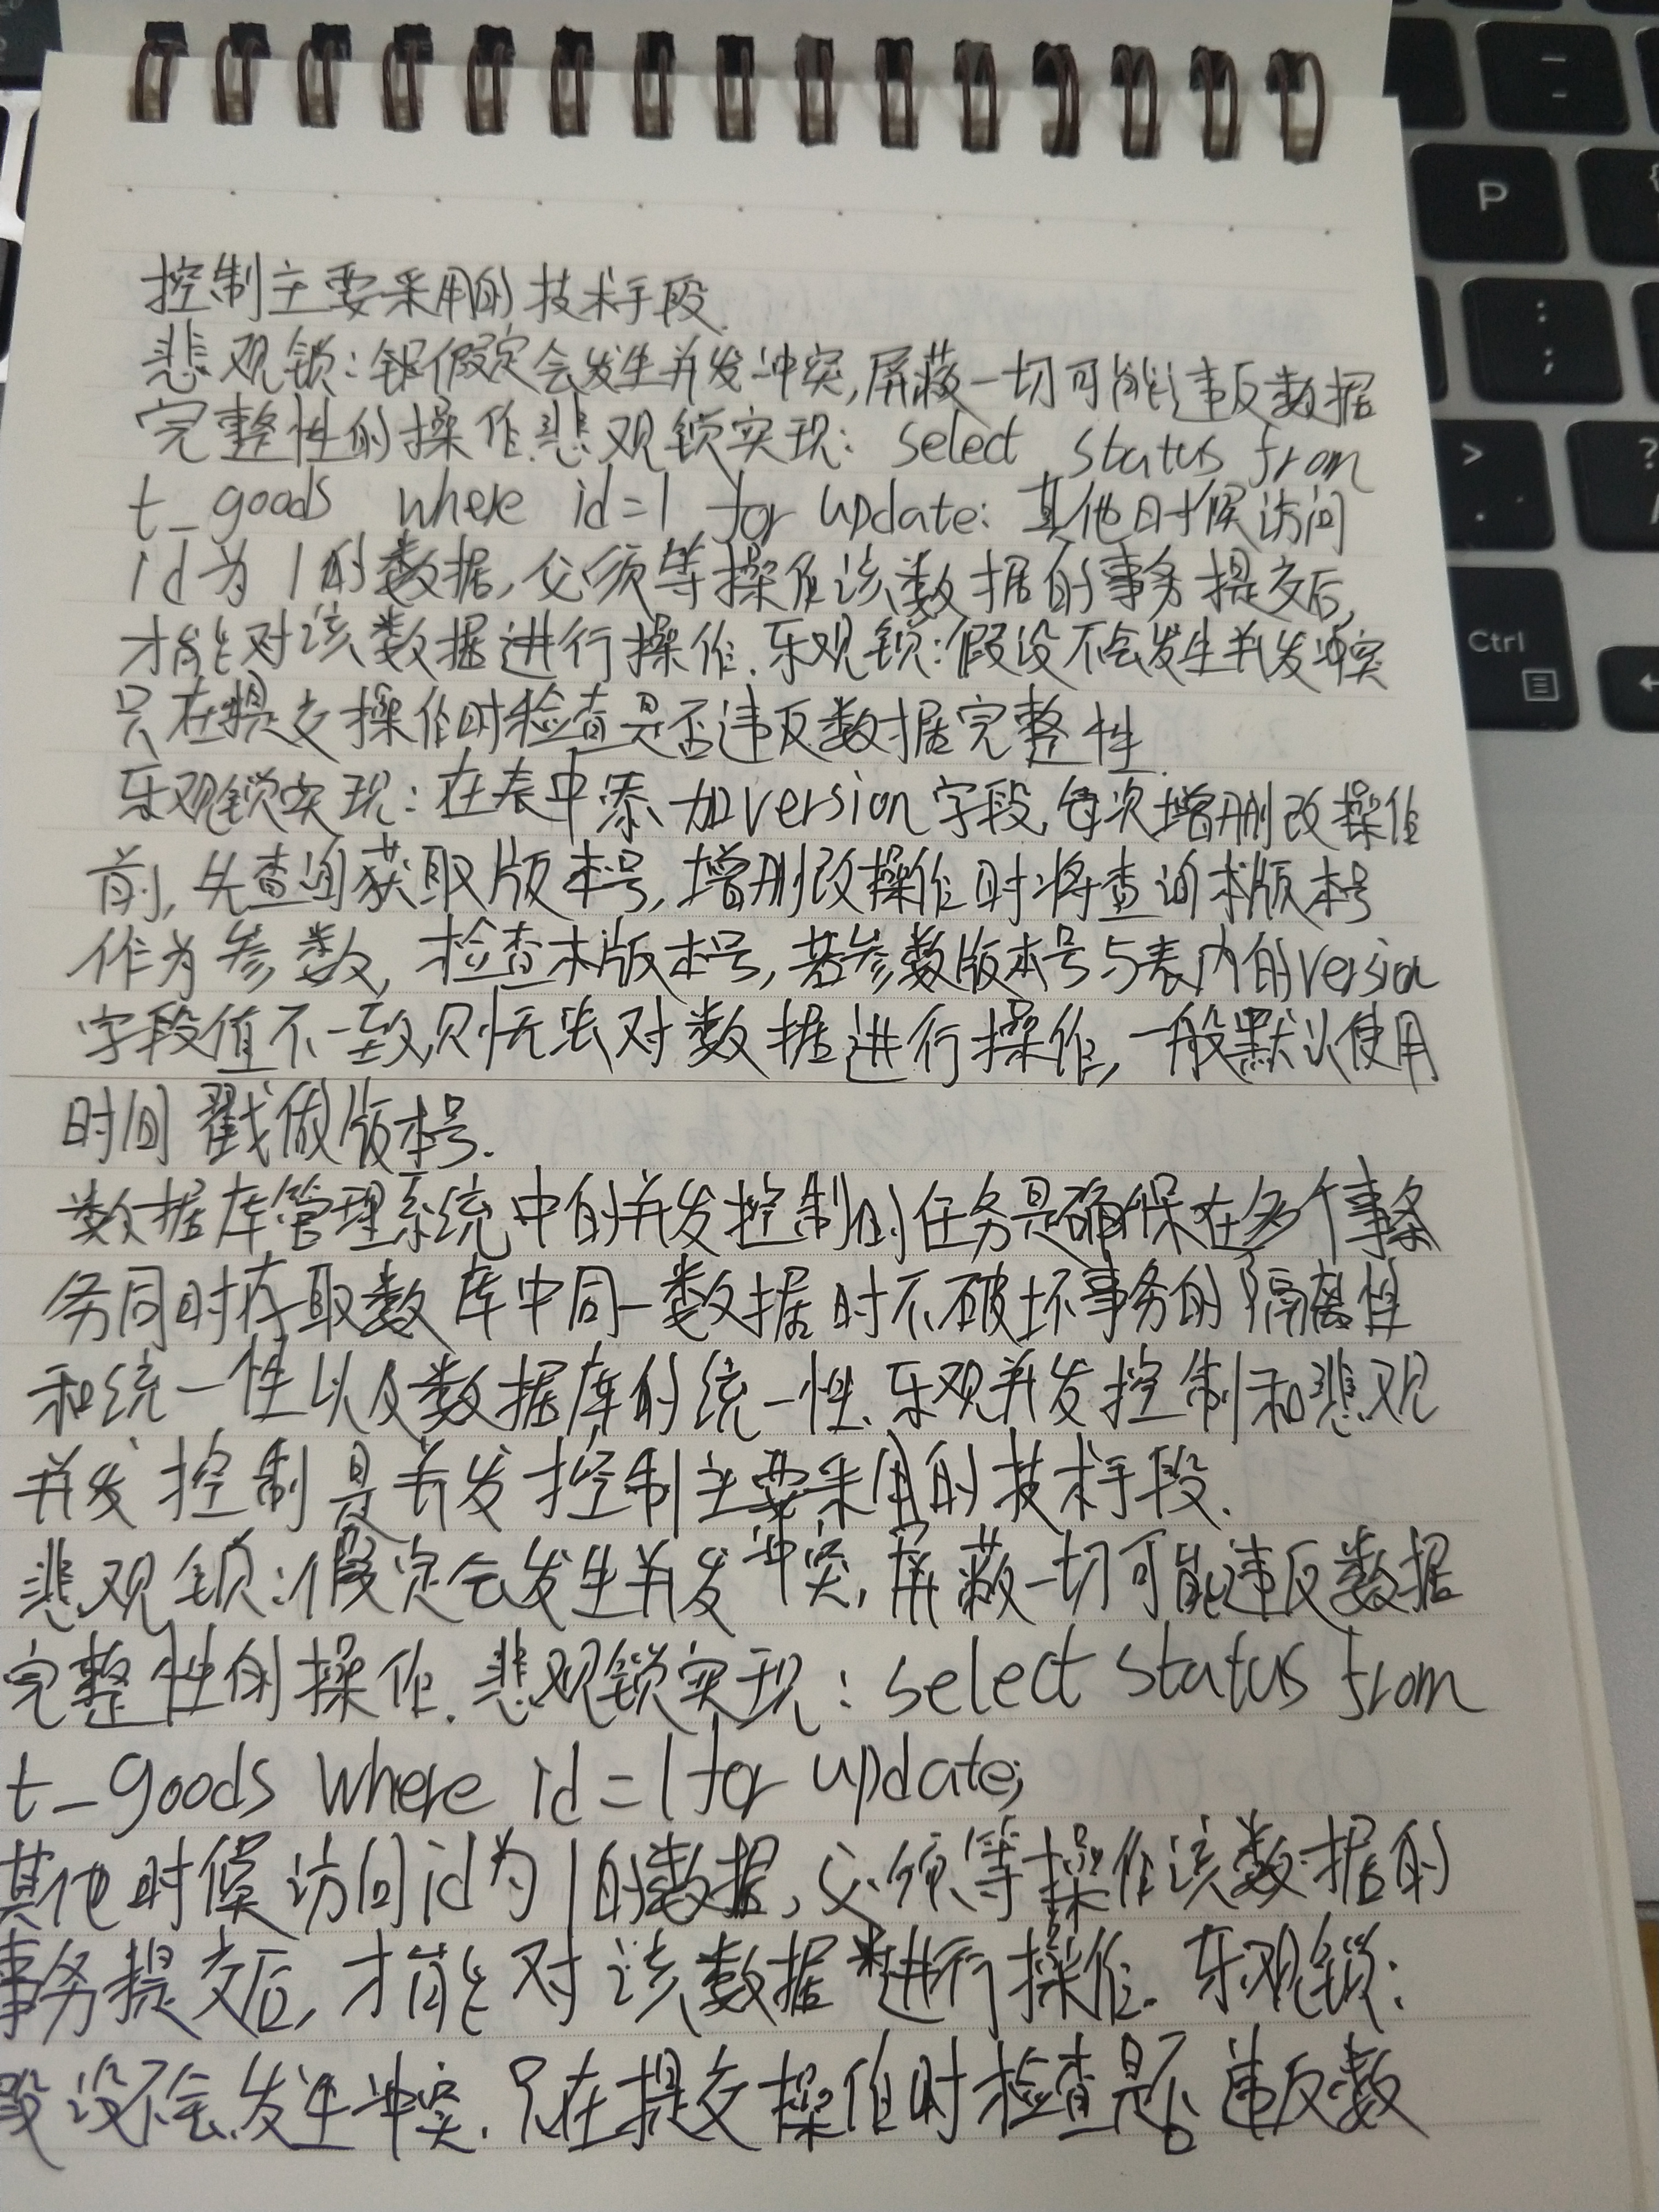 控制主要采用的技术手段.
悲观锁:假定会发生并发冲突,屏蔽一切可能违反数据
完整性的操作.悲观锁实现: select status from
t_goods where id=1 for update: 其他时候访问
id为1的数据,必须等操作该数据的事务提交后,
才能对该数据进行操作.乐观锁:假设不会发生并发冲突
只在提交操作时检查是否违反数据完整性.
乐观锁实现:在表中添加version字段,每次增删改操作
前,先查询获取版本号,增删改操作时将查询本版本号
作为参数,检查本版本号,若参数版本号与表内的version
字段值不一致,则无法对数据进行操作,一般默认使用
时间戳做版本号.
数据库管理系统中的并发控制的任务是确保在多个事
务同时存取数库中同一数据时不破坏事务的隔离性
和统一性以及数据库的统一性.乐观并发控制和悲观
并发控制是并发控制主要采用的技术手段.
悲观锁:假定会发生并发冲突,屏蔽一切可能违反数据
完整性的操作.悲观锁实现:select status from
t_goods where id=1 for update;
其他时候访问id为1的数据,必须等操作该数据的
事务提交后,才能对该数据进行操作.乐观锁:
假设不会发生冲突.只在提交操作时检查是否违反数
P
Ctrl